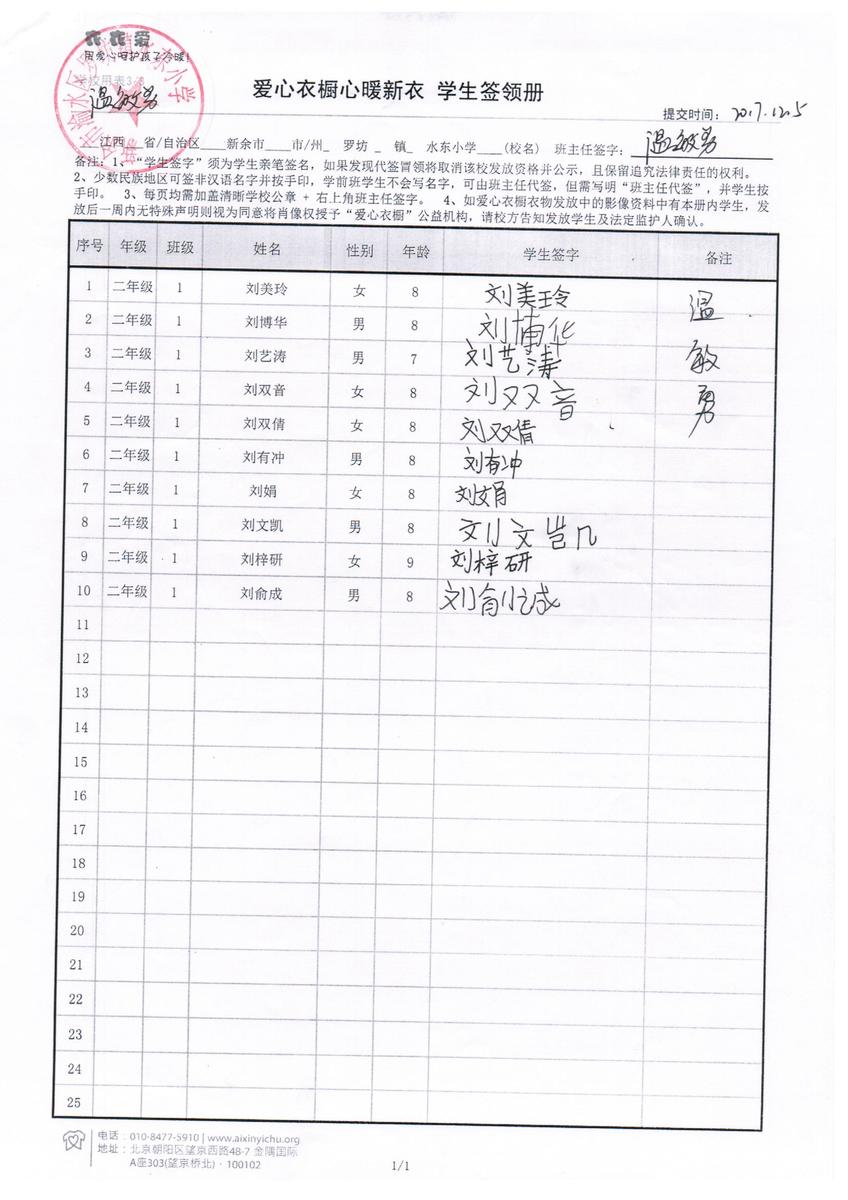 衣衣爱
用爱心呵护孩子冷暖!
学校用表3-3
温敏勇
爱心衣橱心暖新衣 学生签领册
提交时间: 2017.12.5
江西__省/自治区____新余市____市/州_ 罗坊 _ 镇_ 水东小学____(校名) 班主任签字: 温敏勇
备注: 1、“学生签字”须为学生亲笔签名, 如果发现代签冒领将取消该校发放资格并公示, 且保留追究法律责任的权利。
2、少数民族地区可签非汉语名字并按手印, 学前班学生不会写名字, 可由班主任代签, 但需写明“班主任代签”, 并学生按
手印。 3、每页均需加盖清晰学校公章 + 右上角班主任签字。 4、如爱心衣橱衣物发放中的影像资料中有本册内学生, 发
放后一周内无特殊声明则视为同意将肖像权授予“爱心衣橱”公益机构, 请校方告知发放学生及法定监护人确认。
序号 年级 班级 姓名 性别 年龄 学生签字 备注
1 二年级 1 刘美玲 女 8 刘美玲 温
2 二年级 1 刘博华 男 8 刘博华
3 二年级 1 刘艺涛 男 7 刘艺涛 敏
4 二年级 1 刘双音 女 8 刘双音 勇
5 二年级 1 刘双倩 女 8 刘双倩
6 二年级 1 刘有冲 男 8 刘有冲
7 二年级 1 刘娟 女 8 刘娟
8 二年级 1 刘文凯 男 8 刘文凯
9 二年级 1 刘梓研 女 9 刘梓研
10 二年级 1 刘俞成 男 8 刘俞成
11
12
13
14
15
16
17
18
19
20
21
22
23
24
25
电话: 010-8477-5910 | www.aixinyichu.org
地址: 北京朝阳区望京西路48-7 金隅国际
A座303(望京桥北)·100102
1/1